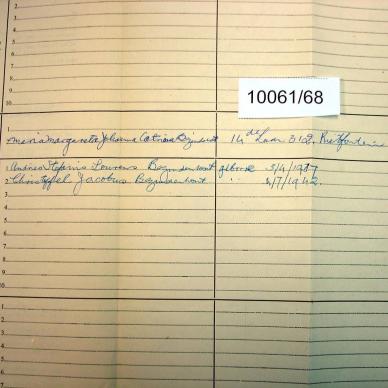 2.
3.
4.
5.
6.
7.
8.
9.
10.
10061/68
1. Maria Margaretha Johanna Catrina Bezuidenhout 14de Laan 312, Rietfontein
1. Andries Stefanis Lourens Bezuidenhout gebore 3/4/1937
2. Christoffel Jacobus Bezuidenhout " 4/7/1942.
3.
4.
5.
6.
7.
8.
9.
10.
1.
2.
3.
4.
5.
6.
7.